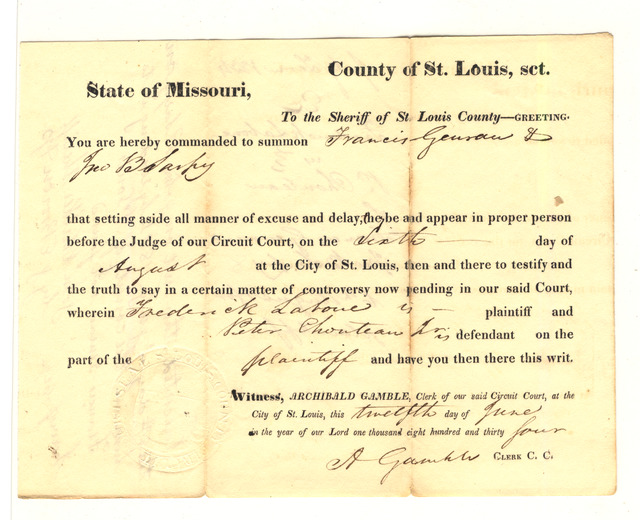 County of St. Louis, sct.
State of Missouri,
To the Sheriff of St Louis County—GREETING.
You are hereby commanded to summon Francis Gevrau &
Jno B Sarpy
that setting aside all manner of excuse and delay, they be and appear in proper person
before the Judge of our Circuit Court, on the Sixth day of
August at the City of St. Louis, then and there to testify and
the truth to say in a certain matter of controversy now pending in our said Court,
wherein Frederick Laboue is plaintiff and
Peter Chouteau Jr. is defendant on the
part of the plaintiff and have you then there this writ.
Witness, ARCHIBALD GAMBLE, Clerk of our said Circuit Court, at the
City of St. Louis, this twelfth day of June
in the year of our Lord one thousand eight hundred and thirty four
A Gamble CLERK C. C.